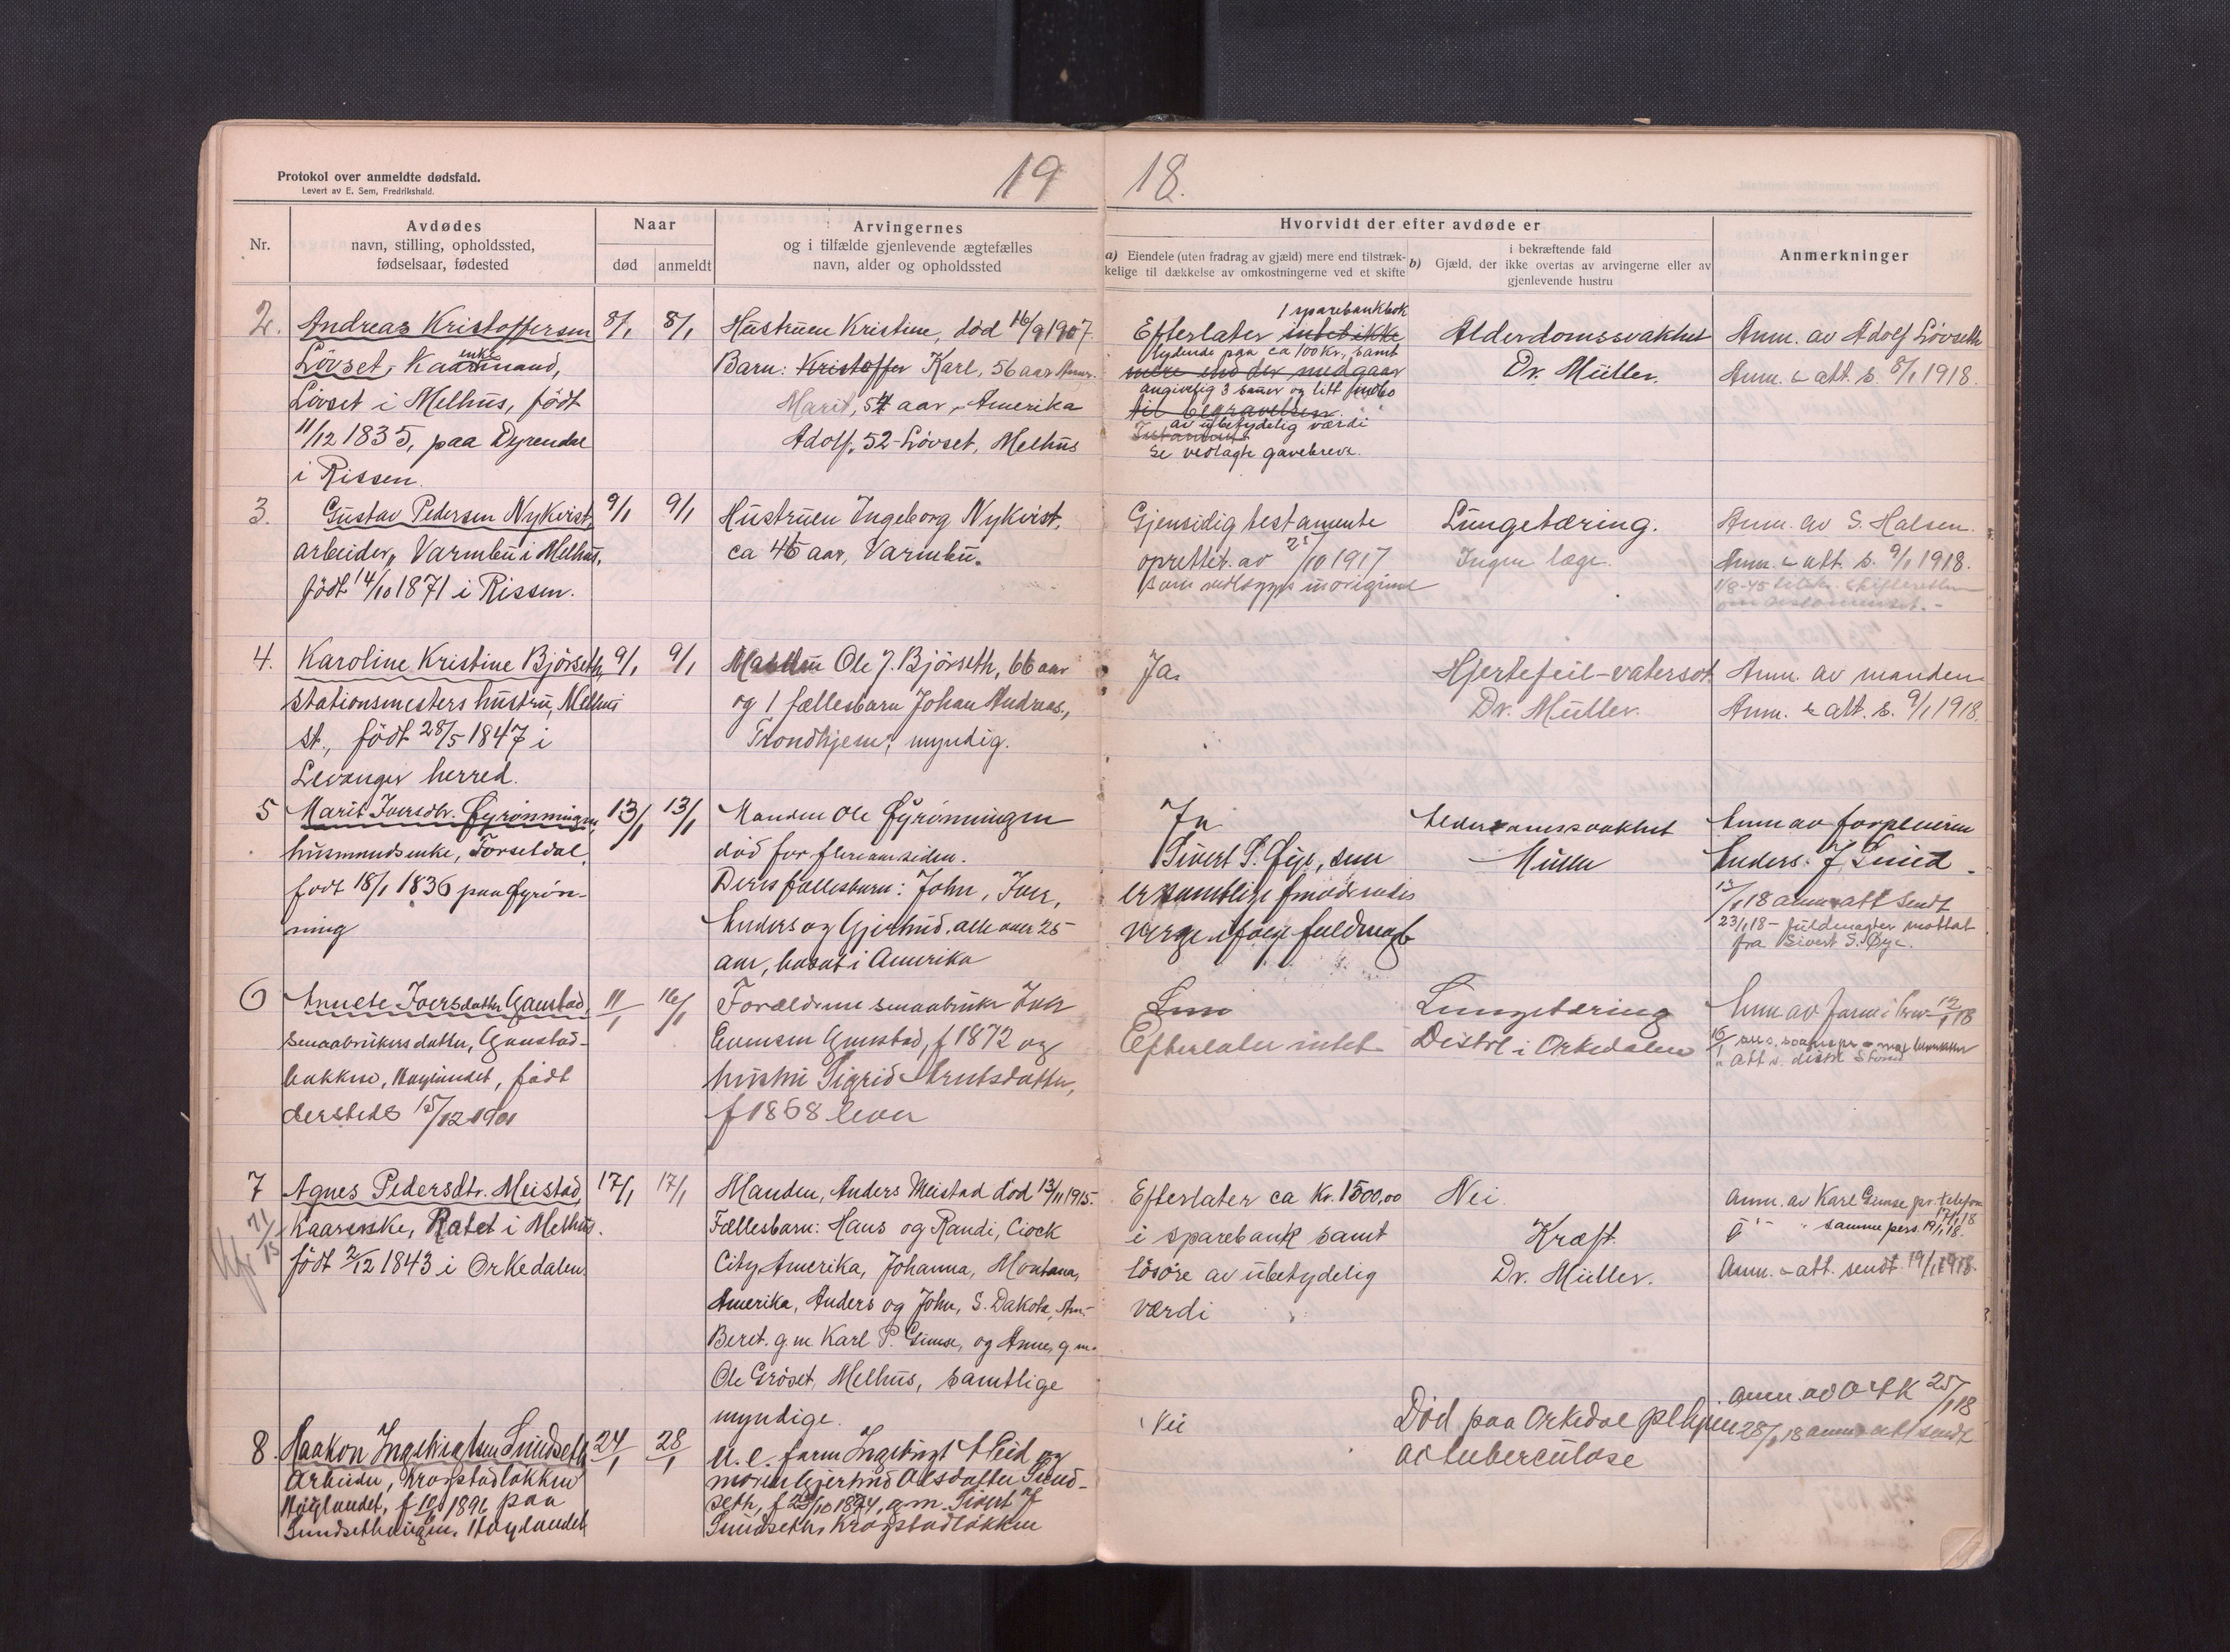 Protokol over anmeldte dødsfald.
Levert av E. Sem, Fredrikshald.
19 18.
Nr.
Avdødes
navn, stilling, opholdssted,
fødselsaar, fødested
Naar
død
anmeldt
Arvingernes
og i tilfælde gjenlevende ægtefælles
navn, alder og opholdssted
Hvorvidt der efter avdøde er
a) Eiendele (uten fradrag av gjæld) mere end tilstræk-
kelige til dækkelse av omkostningerne ved et skifte
b) Gjæld, der i bekræftende fald
ikke overtas av arvingerne eller av
gjenlevende hustru
Anmerkninger
2.
Andreas Kristoffersen
Lövset, Kaarmand,
enke
Lövset i Melhus, födt
11/12 1835, paa Dyrendal
i Rissen.
8/1
8/1
Hustruen Kristine, död 16/9 1907.
Barn: Kristoffer Karl, 56 aar Amer.
Marit, 54 aar, Amerika
Adolf, 52 - Lövset, Melhus
1 sparebankbok
Efterlater intet ikke
lydende paa ca 100 kr, samt
mere end der medgaar
angivelig 3 sauer og litt indbo
til begravelsen.
av ubetydelig værdi
se vedlagte gavebrev.
Alderdomssvakhet
Dr. Müller.
Anm. av Adolf Lövseth
Anm. & att. s. 8/1 1918.
3.
Gustav Pedersen Nykvist,
arbeider, Varmbu i Melhus,
födt 14/10 1871 i Rissen.
9/1
9/1
Hustruen Ingeborg Nykvist,
ca 45 aar, Varmbu.
Gjensidig testamente
oprettet av 25/10 1917
som vedlægges i original
Lungetæring.
Ingen læge.
Anm. av S. Halsen.
Anm. & att. s. 9/1 1918.
4.
Karoline Kristine Björseth,
stationsmesters hustru, Melhus
st., födt 28/5 1847 i
Levanger herred.
9/1
9/1
Manden Ole J. Björseth, 66 aar
og 1 fællesbarn Johan Andreas,
Trondhjem; myndig.
Ja.
Hjertefeil - vatersot.
Dr. Müller.
Anm. av manden
Anm. & att. s. 9/1 1918.
5
Marit Iversdtr. Øyrönningen,
husmandsenke, Forsetdal,
fodt 18/1 1836 paa Øyrön-
ning
13/1
13/1
Manden Ole Øyrönningen
död for flere aar siden.
Deres fællesbarn: John, Iver,
Anders og Gjertrud, alle over 25
aar, bosat i Amerika
Ja
Sivert S. Øye, som
er samtlige
verge ifölge fuldmagt
Alderdomssvakhet
Müller
Anm av
Anders J
13/1 18 anm & att sendt
23/1 18 - fuldmagter mottat
fra Sivert S. Øye.
6
Annete Iversdatter Gaustad,
smaabrukers datter, Gaustad-
bakken, Höylandet, födt
dersteds 15/12 1901
11/1
16/1
Forældrene smaabruker Iver
Evensen Gaustad, f 1872 og
hustru Sigrid Arntsdatter,
f 1868 lever
Efterlater intet
Lungetæring
Distrl i Orkedalen
Anm av faren i brev 12/1 18
7
Agnes Pedersdtr. Meistad,
Kaarenke, Ratet i Melhus.
födt 2/12 1843 i Orkedalen.
17/1
17/1
Manden, Anders Meistad död 13/11 1915.
Fællesbarn: Hans og Randi, Ciock
City Amerika, Johanna, Montana,
Amerika, Anders og John, S. Dakota, Am.-
Beret. g.m. Karl P. Gimse, og Anne, g.m.
Ole Gröset, Melhus, samtlige
myndige.
Efterlater ca Kr. 1500,00
i sparebank samt
lösöre av ubetydelig
værdi
Nei.
Kræft.
Dr. Müller.
Anm. av Karl Gimse pr. telefon
17/1 18
" samme pers. 19/1 18.
Anm. & att. sendt 19/1 1918.
8.
Haakon Ingebrigtsen Sundseth
Arbeider, Krogstadløkken
Höylandet, f 1891 paa
Sundsethaugen, Höylandet
24/1
28/1
U.e. faren Ingebrigt og
moren Gjertrud Olsdatter Sund-
seth, f 1874, g.m. Sivert
Sundseth, Krogstadløkken
Nei
Död paa Orkedal plhjem
av tuberculose
Anm. av 25/1 18
28/1 18 anm & att sendt